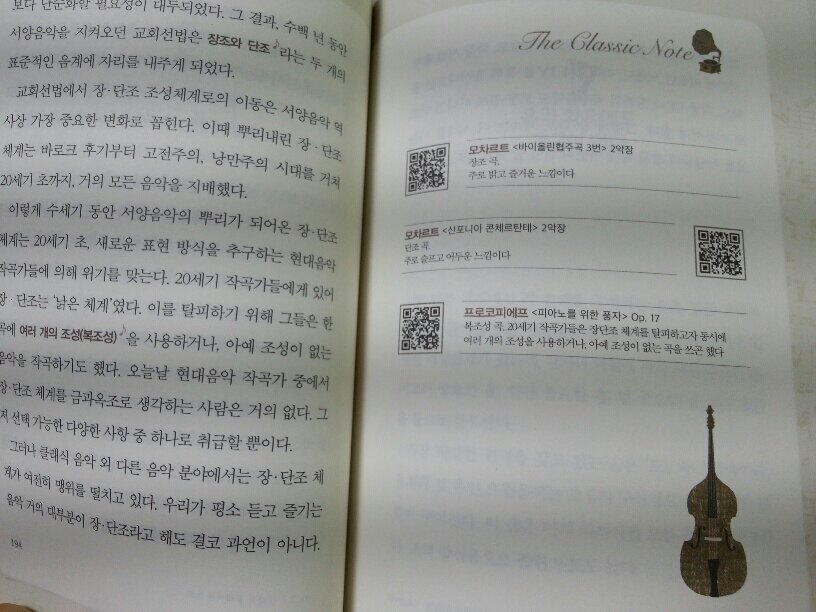 보다 단순화할 필요성이 대두되었다. 그 결과, 수백 년 동안
서양음악을 지켜오던 교회선법은 장조와 단조♪라는 두 개의
표준적인 음계에 자리를 내주게 되었다.
교회선법에서 장·단조 조성체계로의 이동은 서양음악 역
사상 가장 중요한 변화로 꼽힌다. 이때 뿌리내린 장·단조
체계는 바로크 후기부터 고전주의, 낭만주의 시대를 거쳐
20세기 초까지, 거의 모든 음악을 지배했다.
이렇게 수세기 동안 서양음악의 뿌리가 되어온 장·단조
체계는 20세기 초, 새로운 표현 방식을 추구하는 현대음악
작곡가들에 의해 위기를 맞는다. 20세기 작곡가들에게 있어
장·단조는 '낡은 체계'였다. 이를 탈피하기 위해 그들은 한
곡에 여러 개의 조성(복조성)♪을 사용하거나, 아예 조성이 없는
음악을 작곡하기도 했다. 오늘날 현대음악 작곡가 중에서
장·단조 체계를 금과옥조로 생각하는 사람은 거의 없다. 그
저 선택 가능한 다양한 사항 중 하나로 취급할 뿐이다.
그러나 클래식 음악 외 다른 음악 분야에서는 장·단조 체
계가 여전히 맹위를 떨치고 있다. 우리가 평소 듣고 즐기는
음악 거의 대부분이 장·단조라고 해도 결코 과언이 아니다.
194
The Classic Note
모차르트 <바이올린협주곡 3번> 2악장
장조 곡.
주로 밝고 즐거운 느낌이다
모차르트 <신포니아 콘체르탄테> 2악장
단조 곡.
주로 슬프고 어두운 느낌이다
프로코피에프 <피아노를 위한 풍자> Op. 17
복조성 곡. 20세기 작곡가들은 장단조 체계를 탈피하고자 동시에
여러 개의 조성을 사용하거나, 아예 조성이 없는 곡을 쓰곤 했다